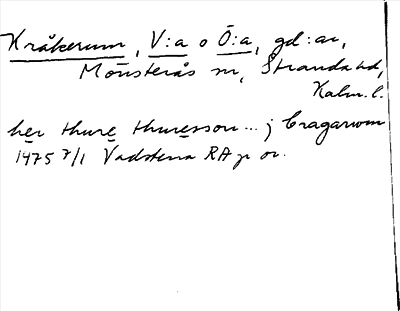 Kråkerum, V:a o Ö:a, gd:ar,
Mönsterås sn, Stranda hd,
Kalm. l.
her thure thuresson... j Cragarwm
1475 7/1 Vadstena RA p or.